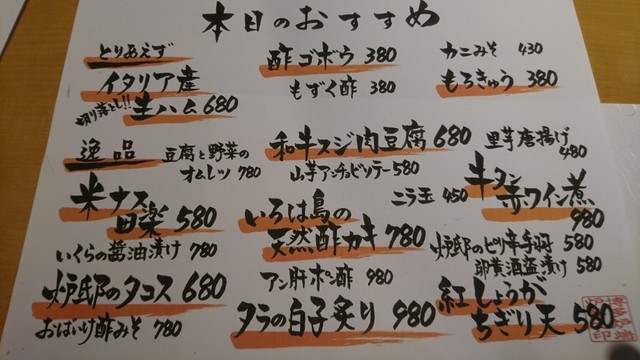 本日のおすすめ
とりあえず
酢ゴボウ 380
カニみそ 430
イタリア産
切り落とし!! 生ハム 680
もずく酢 380
もろきゅう 380
逸品
豆腐と野菜の
オムレツ 780
和牛スジ肉豆腐 680
里芋唐揚げ
480
山芋アンチョビソテー 580
米ナス
田楽 580
ニラ玉 450
牛タン
赤ワイン煮
980
いろは島の
天然酢カキ 780
いくらの醤油漬け 780
炉邸のピリ辛手羽 580
卵黄酒盗漬け 580
炉邸のタコス 680
アン肝ポン酢 980
紅しょうが
ちぎり天 580
おばいけ酢みそ 780
タラの白子炙り 980